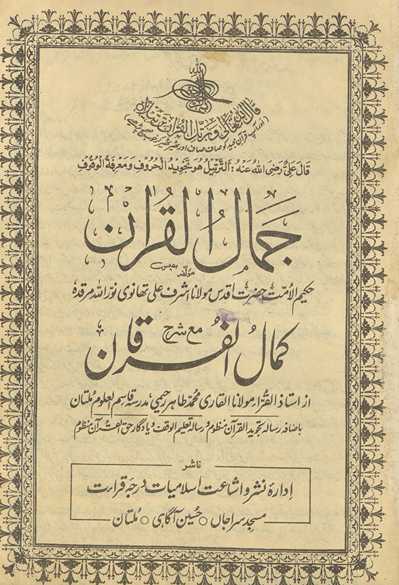 قال اللہ تعالیٰ ورتل القرآن ترتیلا
قَالَ عَلِیٌّ رَضِیَ اللهُ عَنْهُ: اَلتَّرْتِیْلُ هُوَ تَجْوِیْدُ الْحُرُوْفِ وَمَعْرِفَةُ الْوُقُوْفِ
جَمَالُ القُرآن
مؤلفہ
حکیم الامت حضرت اقدس مولانا اشرف علی تھانوی نور اللہ مرقدہٗ
مع شرح
کمالُ الفُرقان
از استاذ القراء مولانا القاری محمد طاہر رحیمی، مدرسہ قاسم العلوم ملتان
باضافہ رسالہ تجوید القرآن منظوم و رسالہ تعلیم الوقف و یادگار حق القرآن منظوم
ناشر
ادارۂ نشر و اشاعت اسلامیات درجہ قرارت
مسجد سراجاں ○ حسین آگاہی ○ ملتان